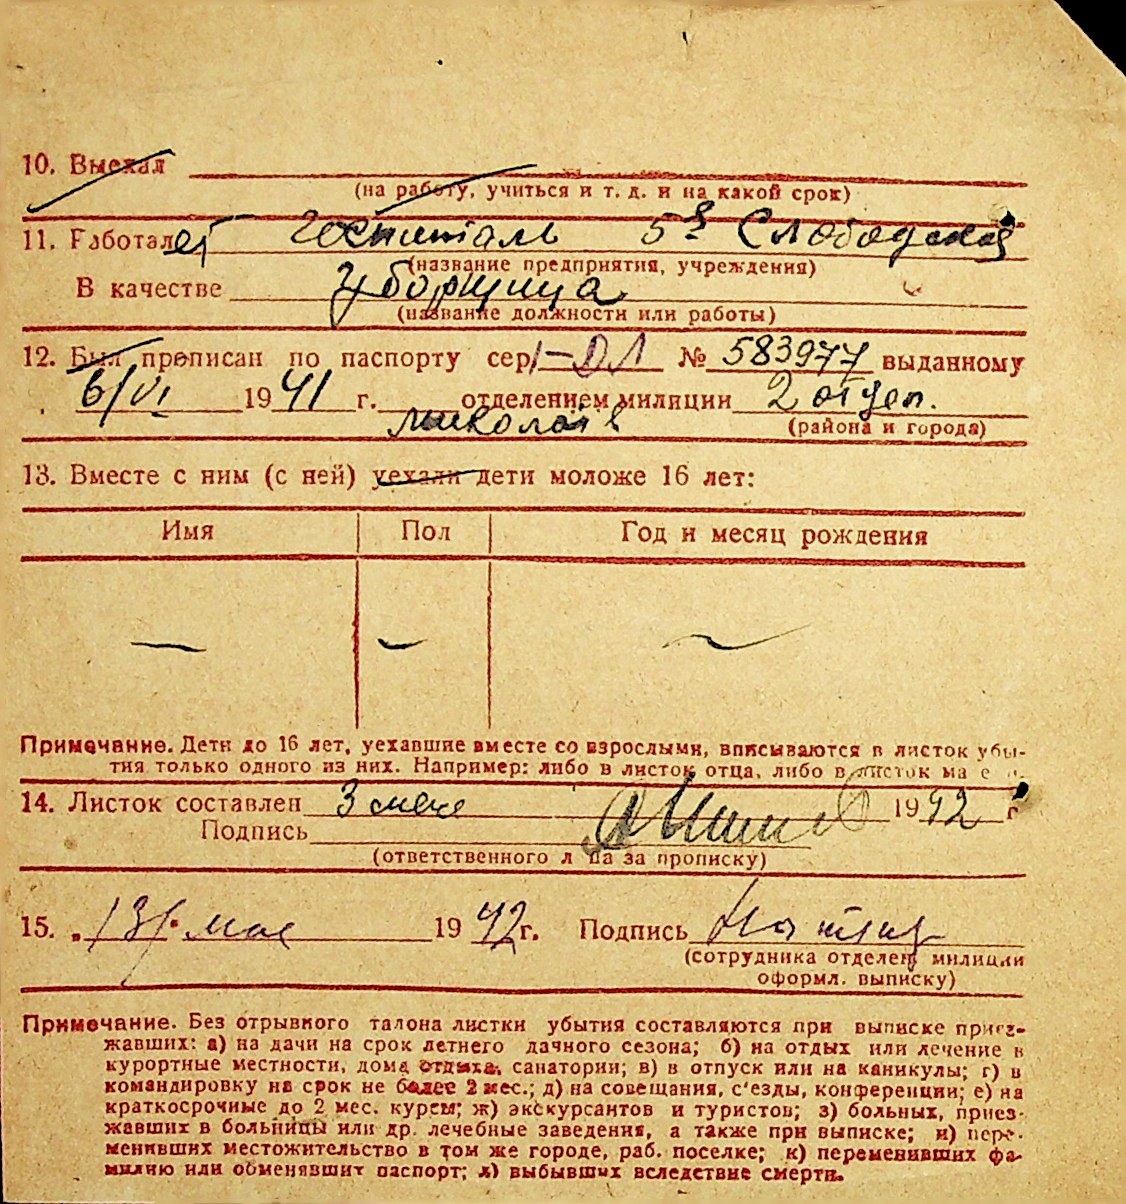 10. Выехал
(на работу, учиться и т. д. и на какой срок)
11. Работает госпиталь 5й Слободской
(название предприятия, учреждения)
В качестве уборщица
(название должности или работы)
12. Был прописан по паспорту сер. I-ДЛ № 583977 выданному
6/VI 1941 г. отделением милиции 2 отдел.
(района и города)
13. Вместе с ним (с ней) уехали дети моложе 16 лет:
Имя Пол Год и месяц рождения
— — —
Примечание. Дети до 16 лет, уехавшие вместе со взрослыми, вписываются в листок убы-
тия только одного из них. Например: либо в листок отца, либо в листок ма е и.
14. Листок составлен 3 мая 1942 г
Подпись
(ответственного л ца за прописку)
15. „13" мая 1942 г. Подпись
(сотрудника отделен. милиции
оформл. выписку)
Примечание. Без отрывного талона листки убытия составляются при выписке приез-
жавших: а) на дачи на срок летнего дачного сезона; б) на отдых или лечение в
курортные местности, дома отдыха, санатории; в) в отпуск или на каникулы; г) в
командировку на срок не более 2 мес.; д) на совещания, с'езды, конференции; е) на
краткосрочные до 2 мес. курсы; ж) экскурсантов и туристов; з) больных, приез-
жавших в больницы или др. лечебные заведения, а также при выписке; и) пере-
менивших местожительство в том же городе, раб. поселке; к) переменивших фа-
милию или обменявшит паспорт; л) выбывших вследствие смерти.